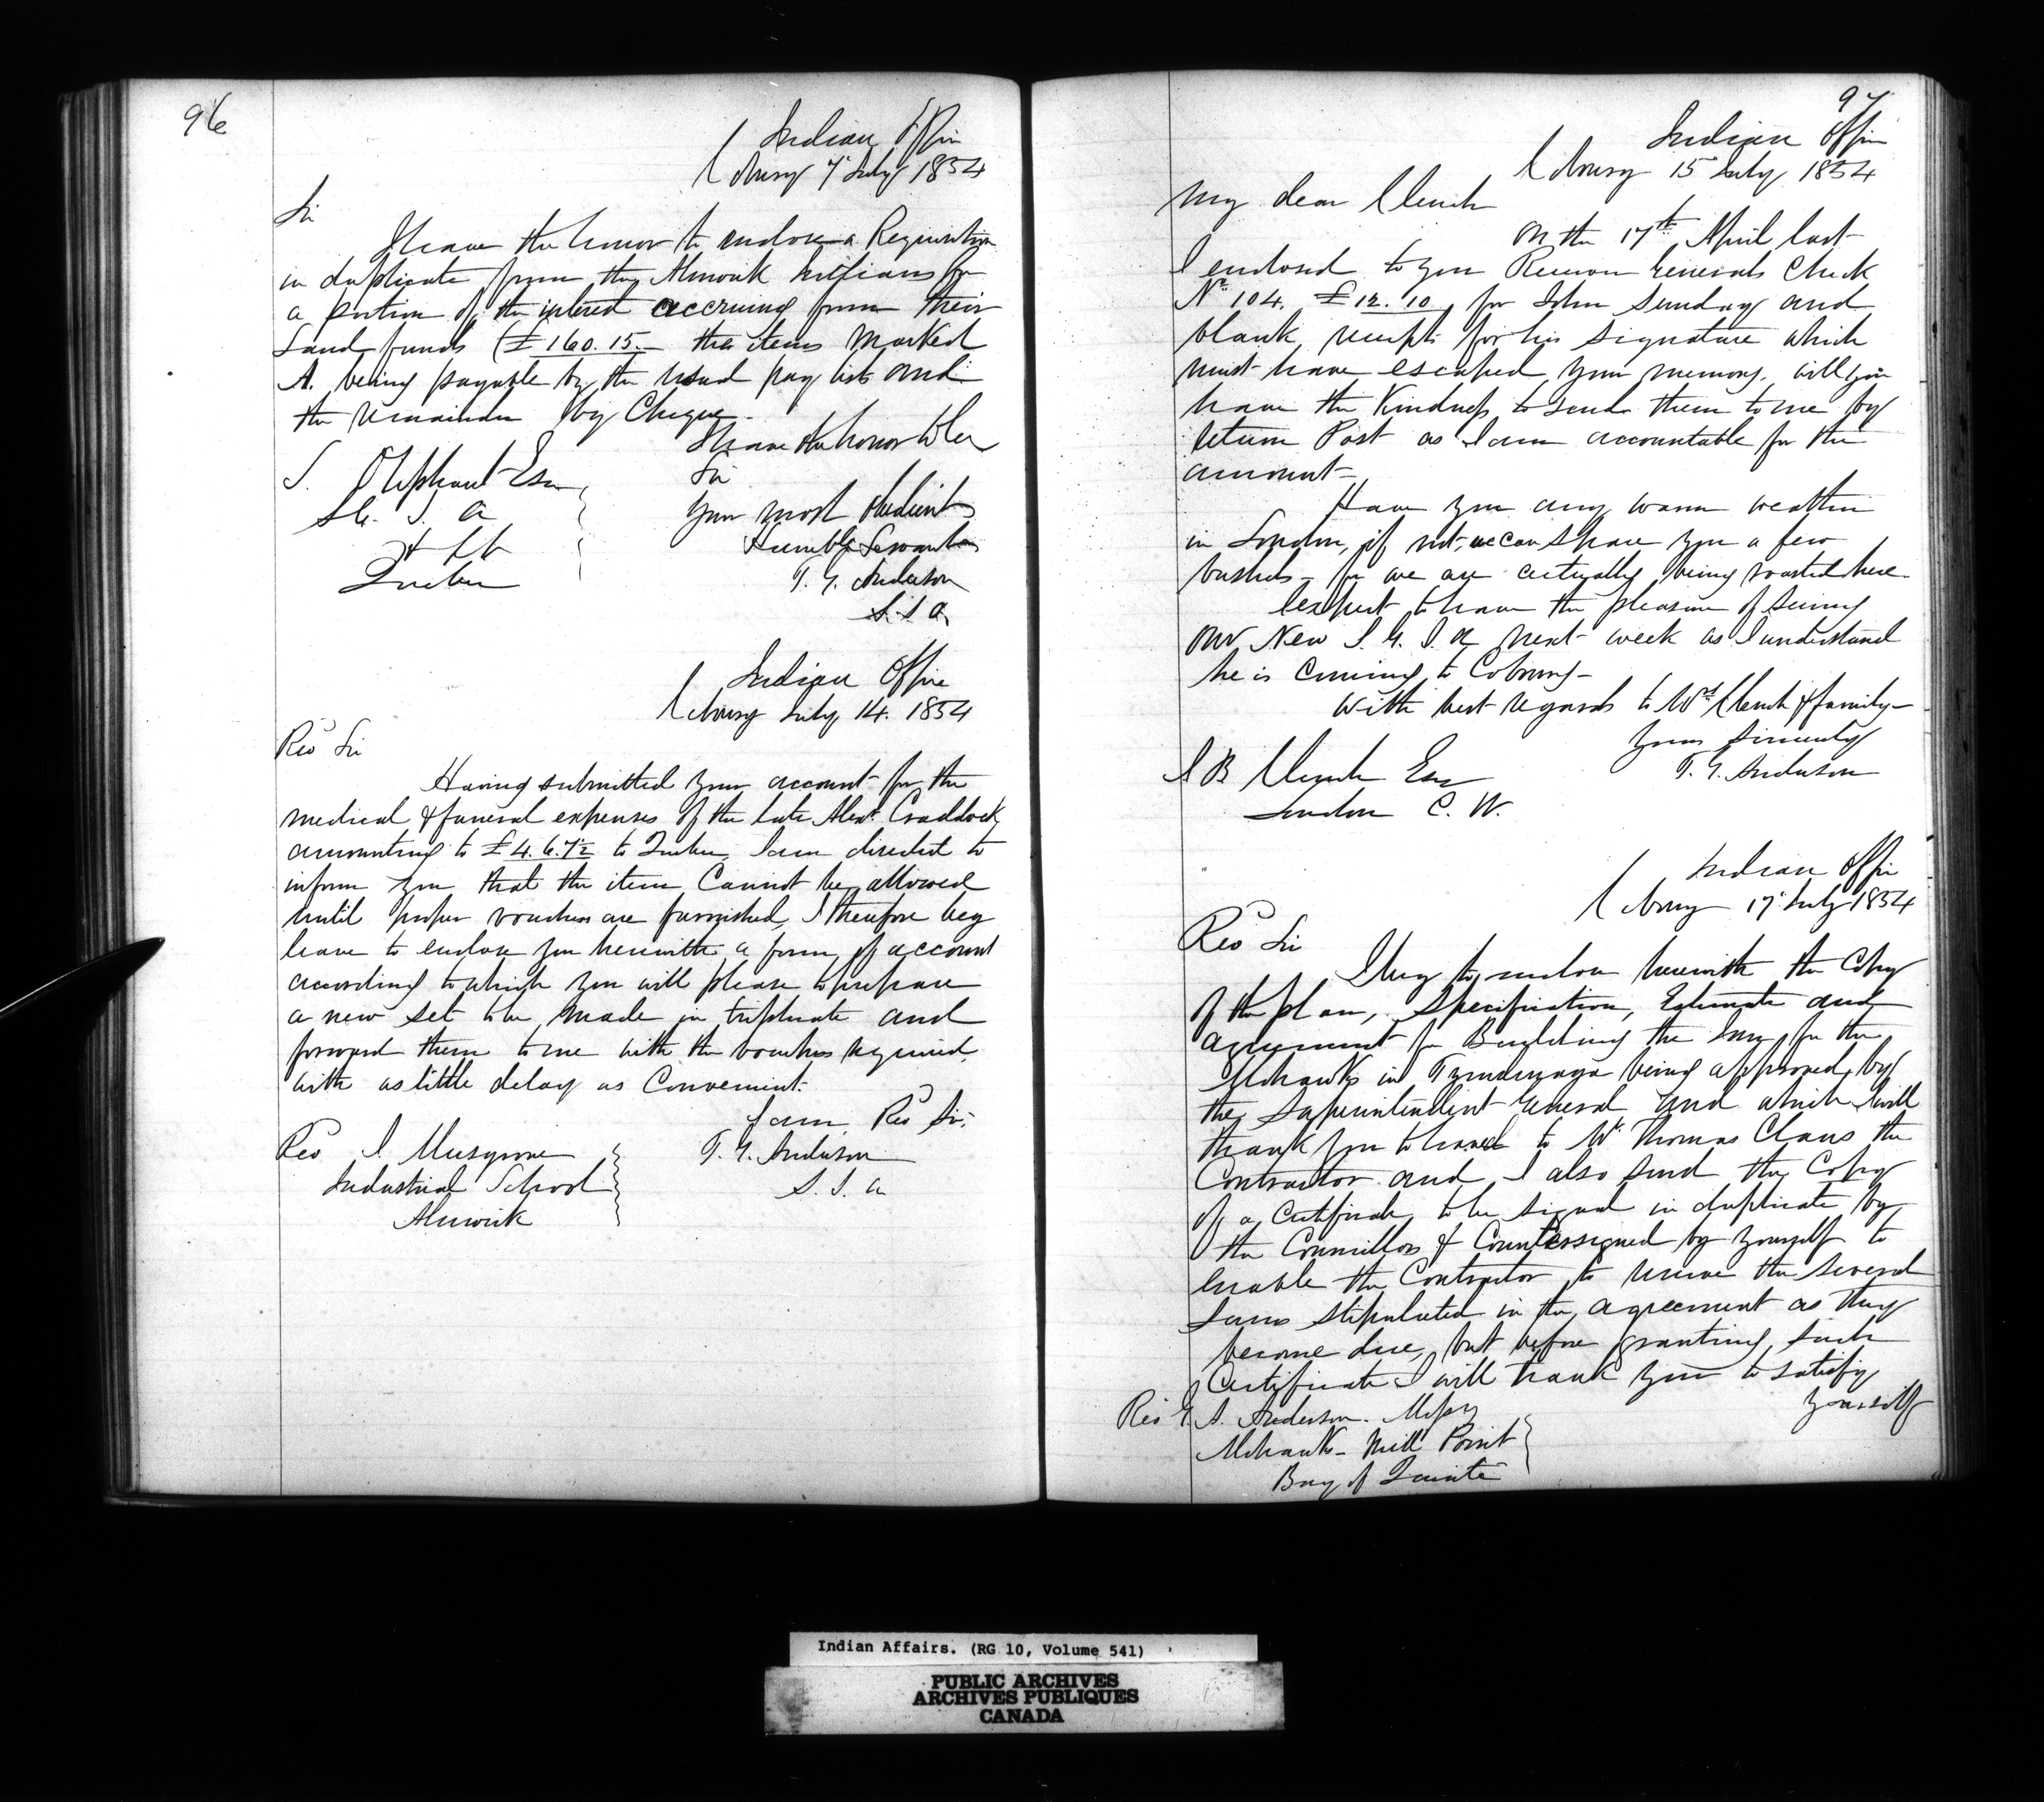 96
Indian Office
Cobourg 7 July 1854
Sir
I have the honor to enclose a Requisition
in duplicate from the Alnwick Indians for
a portion of the interest accruing from their
Land funds (£160.15.– the items marked
A. being payable by the usual pay list and
the remainder by Cheque.
I have the honor to be
Sir
Your most obedient
Humble Servant
T. G. Anderson
S. I. A.
L. Oliphant Esqr
S.G. I. A
&c &c
Quebec
Indian Office
Cobourg July 14. 1854
Revd Sir
Having submitted your account for the
medical & funeral expenses of the late Alexr Craddock
amounting to £4.6.7½ to Quebec, I am directed to
inform you that the item Cannot be allowed
until proper vouchers are furnished, I therefore beg
leave to enclose you herewith a form of account
according to which you will please to prepare
a new set to be made in triplicate and
forward them to me with the vouchers required
with as little delay as Convenient.
I am Revd Sir.
T. G. Anderson
S. I. A
Revd J. Musgrove
Industrial School
Alnwick
97
Indian Office
Cobourg 15 July 1854
My dear Clench
On the 17th April last
I enclosed to you Receiver Generals Check
No 104. £12.10 for John Sunday and
blank receipts for his signature which
must have escaped your memory, will you
have the Kindness to send them to me by
return Post as I am accountable for the
amount–
Have you any warm weather
in London, if not, we can spare you a few
bushels – for we are actually being roasted here
I expect to have the pleasure of seeing
our New S. G. I. A next week as I understand
he is coming to Cobourg–
With best regards to Mrs Clench & family–
Yours Sincerely
T. G. Anderson
J B Clench Esqr
London C. W.
Indian Office
Cobourg 17 July 1854
Revd Sir
I beg to enclose herewith the Copy
of the plan, Specification, Estimate and
agreement for Building the for the
Mohawks in Tyendinaga being approved by
the Superintendent General and which I will
thank you to hand to Mr Thomas Claus the
Contractor and I also send the Copy
of a Certificate to be signed in duplicate by
the Councillors & Countersigned by yourself to
enable the Contractor to receive the several
sums stipulated in the agreement as they
become due, but before granting such
Certificate I will thank you to satisfy
yourself
Revd G. A. Anderson. Missy
Mohawks – Mill Point
Bay of Quinté
Indian Affairs. (RG 10, Volume 541)
PUBLIC ARCHIVES
ARCHIVES PUBLIQUES
CANADA